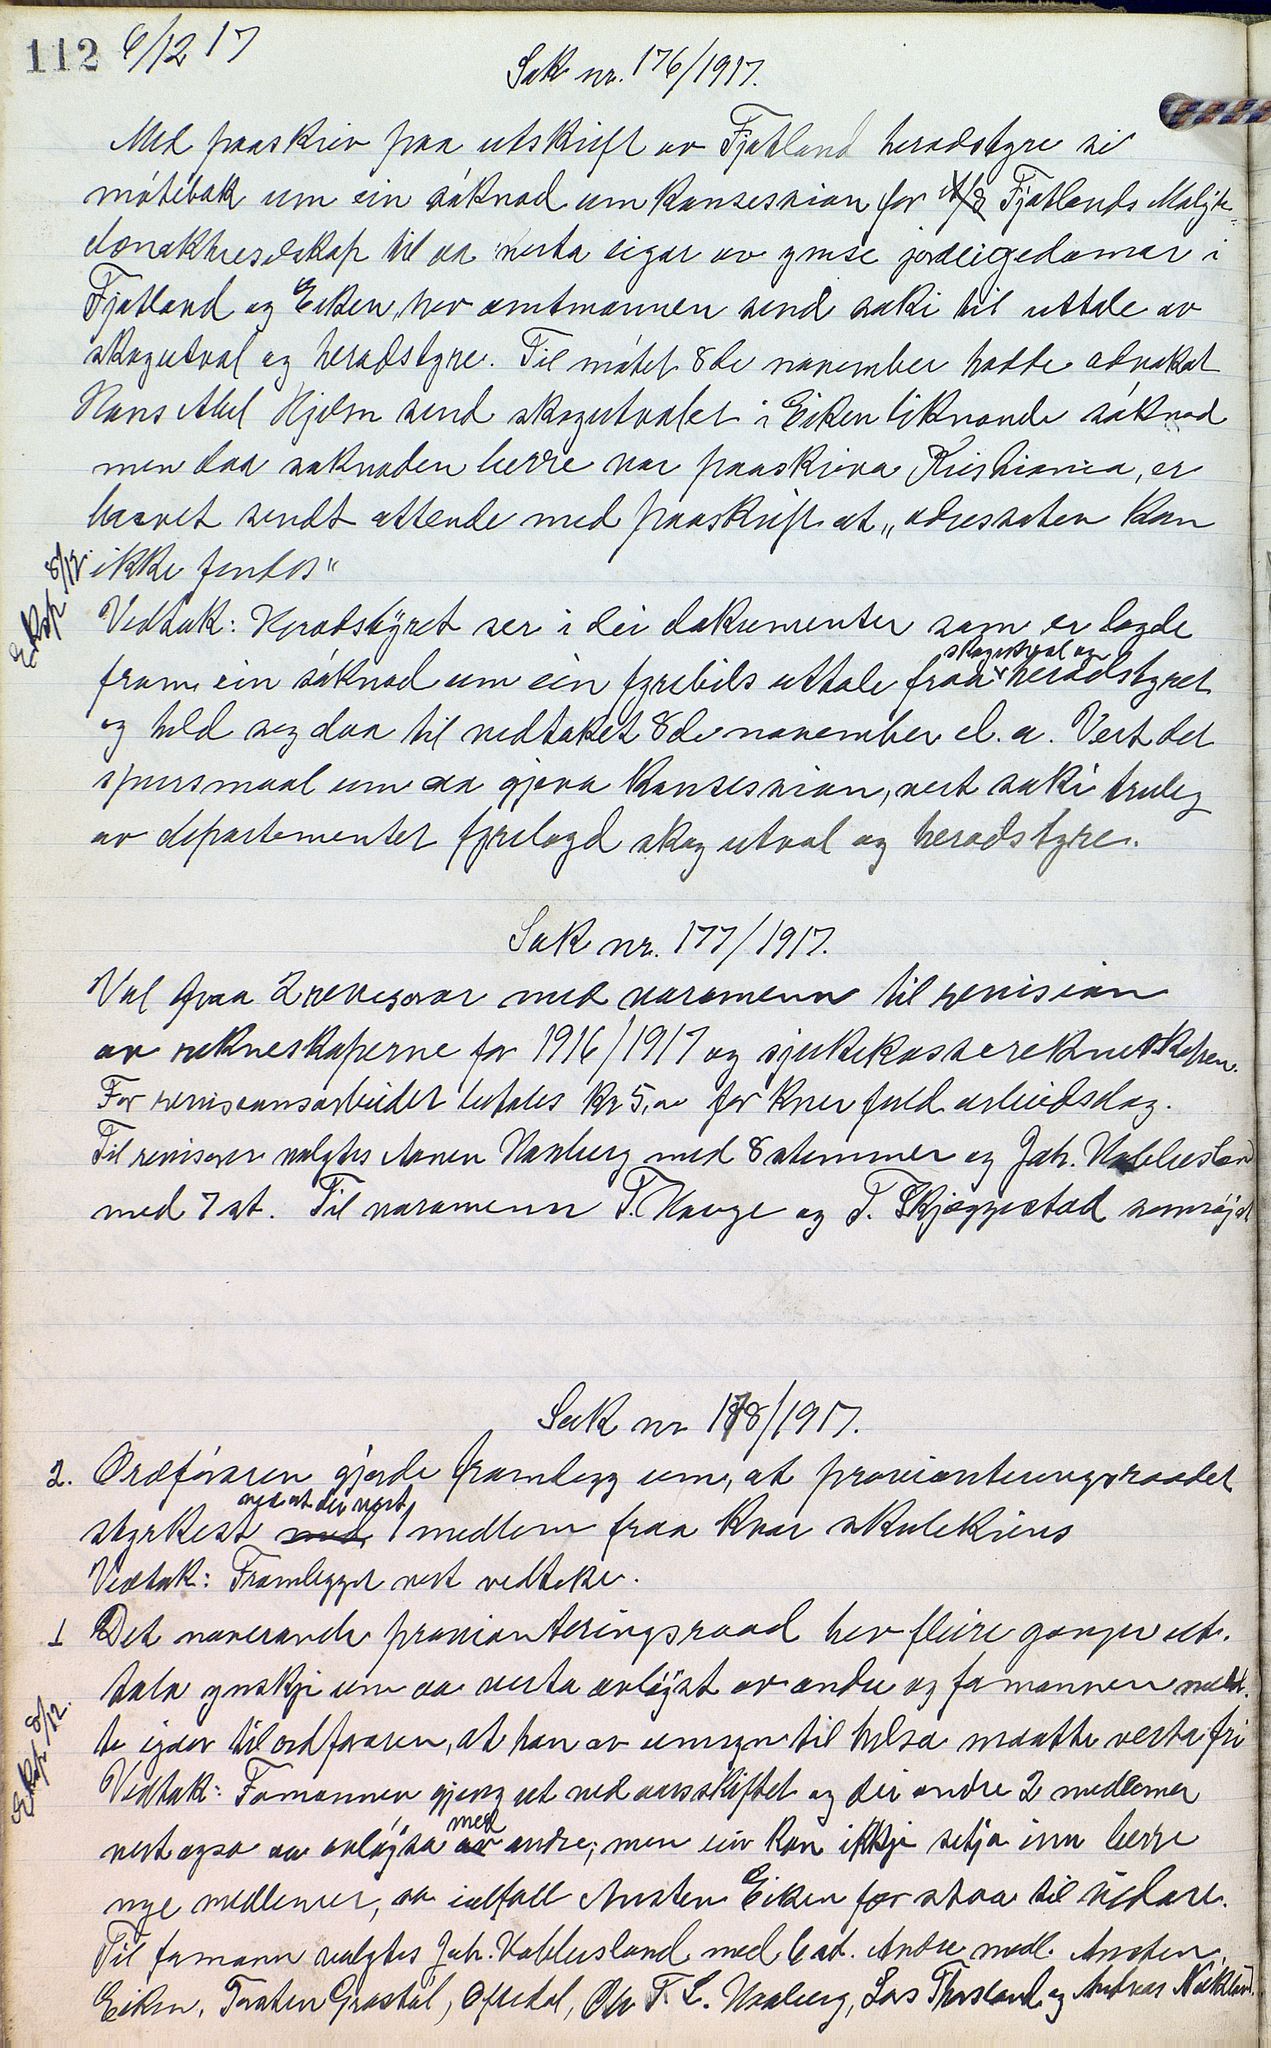 112 6/12 17
Sak nr. 176/1917.
Med paaskriv paa utskrift av Fjotland heradstyre si
mötebok um ein söknad um konsession for A/S Fjotlands Molyb-
dænaktieselskap til aa verta eigar av ymse jordeigedomar i
Fjotland og Eiken, hev amtmannen send saki til uttale av
skogutval og heradstyre. Til mötet 8de november hadde advokat
Hans Abel Hjelm send skogutvalet i Eiken liknande söknad
men daa soknaden berre var paaskriva Kristiania, er
brevet sendt attende med paaskrift at "adressaten kan
ikke findes"
Eksp 8/12.
Vedtak: Heradstyret ser i dei dokumenter som er lagde
fram ein söknad um ein fyrebils uttale fraa skogutval og heradstyret
og held seg daa til vedtaket 8de november d. a. Vert det
spursmaal um aa gjeva konsession, vert saki truleg
av departementet fyrelagd skogutval og heradstyre.
Sak nr. 177/1917.
Val paa 2 revisorar med varamenn til revision
av rekneskaperne for 1916/1917 og sjukekasserekneskapen.
For revisionsarbeidet betales kr 5,00 for kver full arbeidsdag.
Til revisorer valgtes Aanen Haaberg med 8 stemmer og Joh. Hobbesland
med 7 st. Til varamenn T. Hauge og T. Skjeggestad samröjst
Sak nr 178/1917.
2. Ordföraren gjorde framlegg um, at provianteringsraadet
styrkest ved at dei vert 1 medlem fraa kvar skulekrins
Vedtak: Framlegget vert vedteke.
1 Det noverande provianteringsraad hev fleire gonger ut-
tala ynskje um aa verta avlöyst av andre og formannen meld-
te igaar til ordföraren, at han av umsyn til helsa maatte verta fri
Eksp. 8/12.
Vedtak: Formannen gjeng ut ved aarsskiftet og dei andre 2 medlemer
vert ogso aa avlöysa med andre; men ein kan ikkje setja inn berre
nye medlemer, so ialfall Ansten Eiken fær staa til vidare.
Til formann valgtes Joh. Hobbesland med 6 st. Andre medl. Ansten
Eiken, Torsten Grastöl, Ofredal, Ole T. L. Haaberg, Lars Thorsland og Andreas